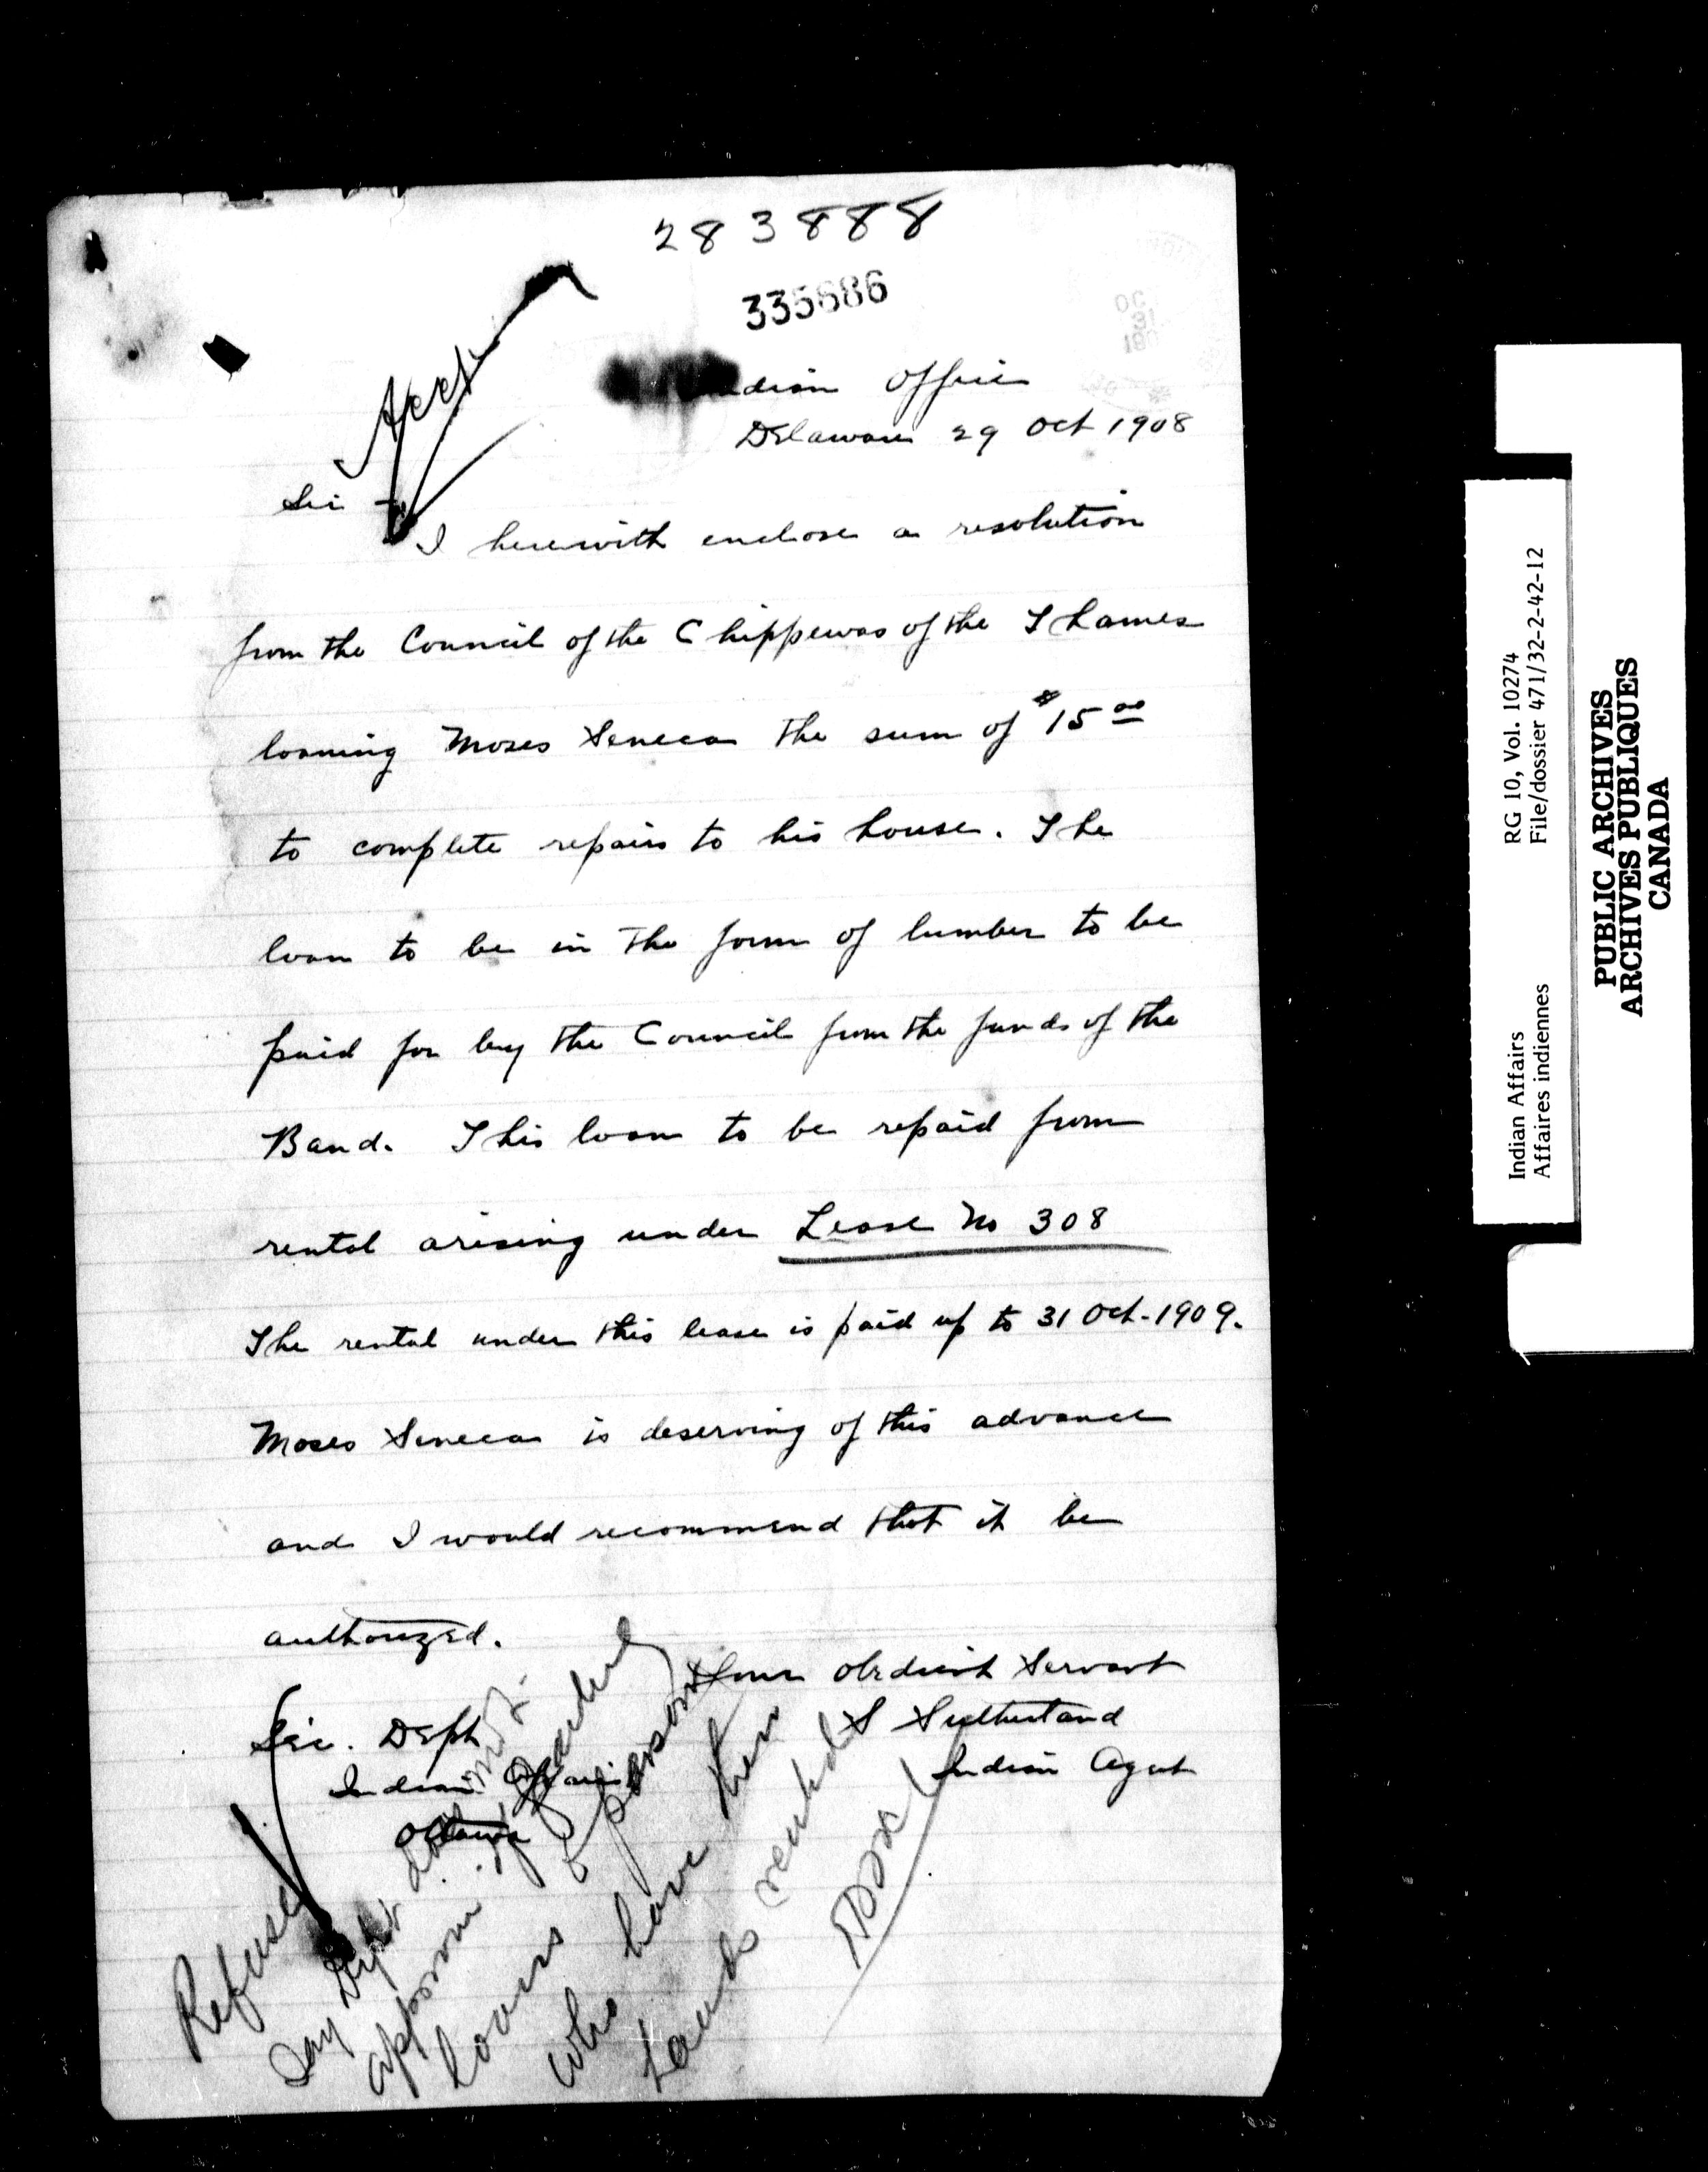 283888
335686
Indian Office
Delaware 29 Oct 1908
Acct
Sir
I herewith enclose a resolution
from the Council of the Chippewas of the Thames
loaning Moses Seneca the sum of $15 00
to complete repairs to his house. The
loan to be in the form of lumber to be
paid for by the Council from the funds of the
Band. This loan to be repaid from
rental arising under Lease No 308
The rental under this lease is paid up to 31 Oct. 1909.
Moses Seneca is deserving of this advance
and I would recommend that it be
authorized.
Your obedient Servant
S Sutherland
Indian Agent
Sec. Dept
Indian Affairs
Ottawa
Refuse
Say Dept does not
approve of granting
loans to persons
who have their
lands rented
OC
31
190
RG 10, Vol. 10274
File/dossier 471/32-2-42-12
Indian Affairs
Affaires indiennes
PUBLIC ARCHIVES
ARCHIVES PUBLIQUES
CANADA